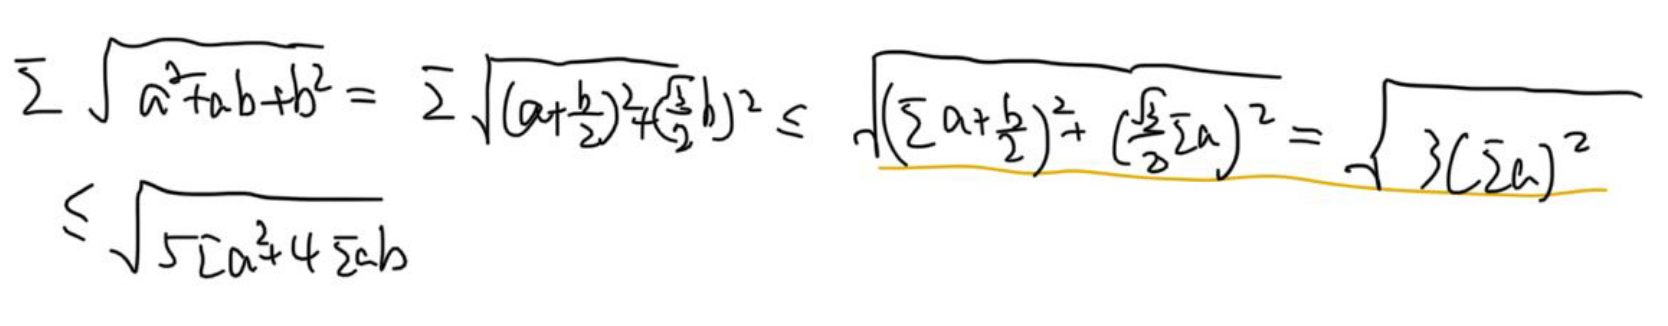 Σ √(a²+ab+b²) = Σ √((a+b/2)²+(√3/2 b)²) ≤ √((Σ a+b/2)²+(√3/2 Σa)²) = √(3(Σa)²)
≤ √(5Σa²+4Σab)